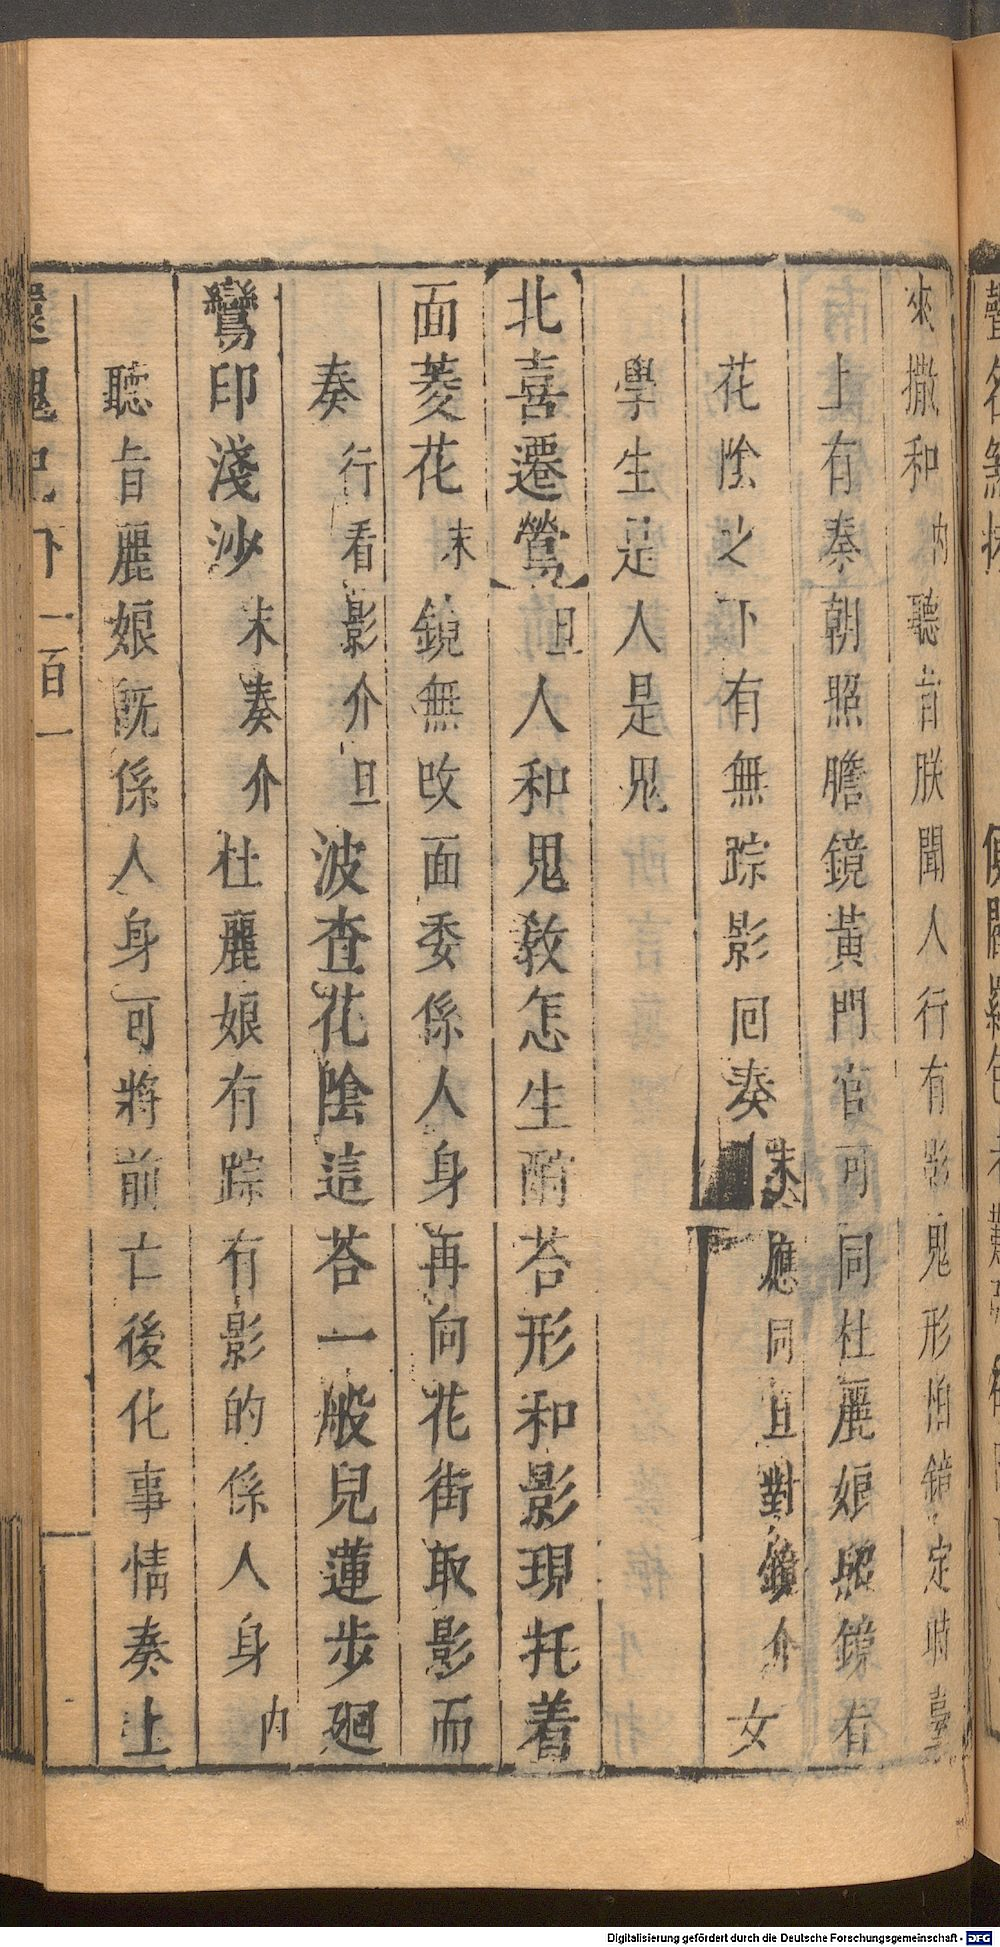 來撒和內聽旨朕聞人行有影鬼形怕鏡定時臺
上有秦朝照膽鏡黃門官可同杜麗娘照鏡看
花陰之下有無踪影回奏末應同旦對鏡介女
學生是人是鬼
北喜遷鶯旦人和鬼教怎生酧荅形和影現托着
面菱花末鏡無改面委係人身再向花街取影而
奏行看影介旦波查花陰這荅一般兒蓮步廻
鸞印淺沙末奏介杜麗娘有踪有影的係人身內
聽旨麗娘既係人身可將前亡後化事情奏上
還魂記下 一百一
Digitalisierung gefördert durch die Deutsche Forschungsgemeinschaft - DFG